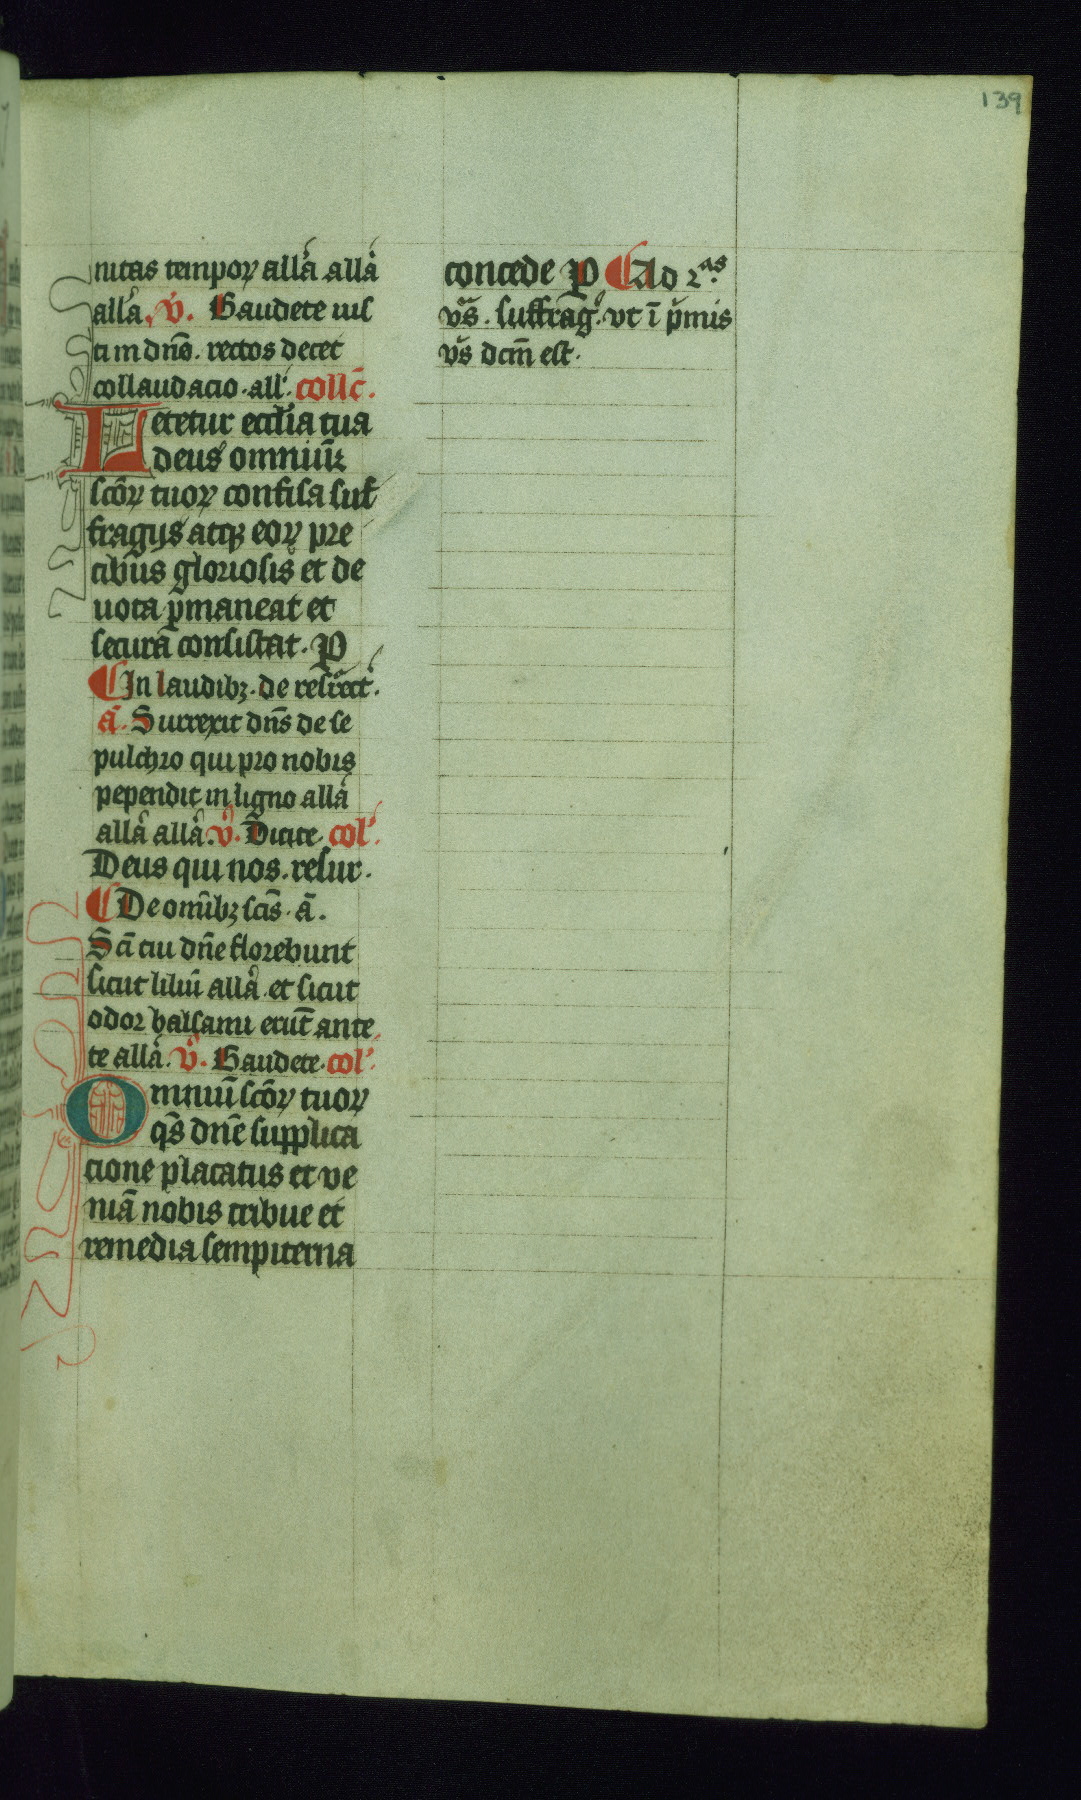 139
nitas tempoꝝ all̄a all̄a
all̄a. v̄. Gaudete ius
ti in dn̄o. rectos decet
collaudacio. all'. coll̄c.
Letetur eccl̄ia tua
deus omniū
sc̄oꝝ tuoꝝ confisa suf
fragijs atqꝫ eoꝝ pre
cibus gloriosis et de
uota ꝑmaneat et
secura consistat. P
In laudibꝫ. de resurrect'.
ā. Surrexit dn̄s de se
pulchro qui pro nobis
pependit in ligno all̄a
all̄a all̄a. v̄. Dicite. col'.
Deus qui nos. resur.
De om̄ibꝫ sc̄is. ā.
Sc̄i tui dn̄e florebunt
sicut liliū all̄a. et sicut
odor balsami erūt ante
te all̄a. v̄. Gaudete. col'.
Omniū sc̄oꝝ tuoꝝ
q̄s dn̄e supplica
cione placatus et ve
niā nobis tribue et
remedia sempiterna
concede P Ad 2as
vr̄s. suffrag'. vt ī p̄mis
vr̄s dcm̄ est.